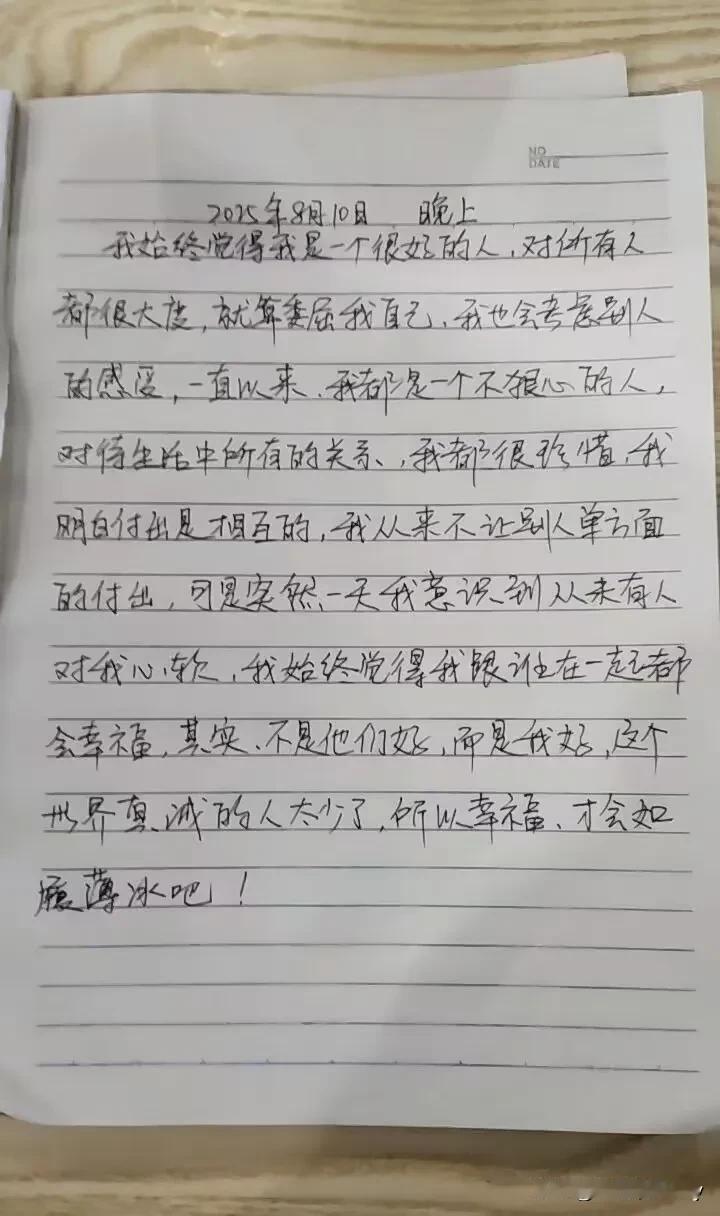 NO
DATE
2025年8月10日 晚上
我始终觉得我是一个很好的人，对所有人
都很大度，就算委屈我自己、我也会考虑别人
的感受，一直以来、我都是一个不狠心的人，
对待生活中所有的关系、，我都很珍惜、我
明白付出是相互的，我从来不让别人单方面
的付出，可是突然、一天我意识到从未有人
对我心软，我始终觉得我跟谁在一起都
会幸福，其实、不是他们好，而是我好，这个
世界真诚的人太少了，所以幸福、才会如
履薄冰吧！